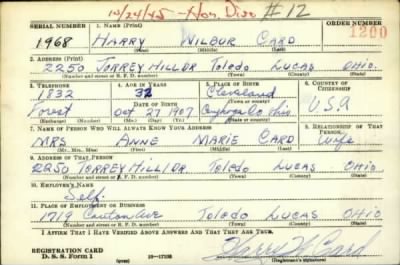 10/24/45 - Hon. Disc #12
SERIAL NUMBER 1. NAME (Print) ORDER NUMBER
1968 HARRY WILBUR CARD 1200
(First) (Middle) (Last)
2. ADDRESS (Print)
2250 TORREY HILL DR TOLEDO LUCAS OHIO.
(Number and street or R. F. D. number) (Town) (County) (State)
3. TELEPHONE 4. AGE IN YEARS 5. PLACE OF BIRTH 6. COUNTRY OF CITIZENSHIP
1832 32 Cleveland
DATE OF BIRTH (Town or county)
Forest Oct 27 1907 Ohio USA
(Exchange) (Number) (Mo.) (Day) (Yr.) (State or country)
7. NAME OF PERSON WHO WILL ALWAYS KNOW YOUR ADDRESS 8. RELATIONSHIP OF THAT PERSON
MRS ANNE MARIE CARD Wife
(Mr., Mrs., Miss) (First) (Middle) (Last)
9. ADDRESS OF THAT PERSON
2250 TORREY HILL DR. TOLEDO LUCAS OHIO
(Number and street or R. F. D. number) (Town) (County) (State)
10. EMPLOYER'S NAME
Self.
11. PLACE OF EMPLOYMENT OR BUSINESS
1719 Canton Ave TOLEDO LUCAS OHIO
(Number and street or R. F. D. number) (Town) (County) (State)
I AFFIRM THAT I HAVE VERIFIED ABOVE ANSWERS AND THAT THEY ARE TRUE.
REGISTRATION CARD
D. S. S. Form 1 Harry W Card
(Registrant's signature)